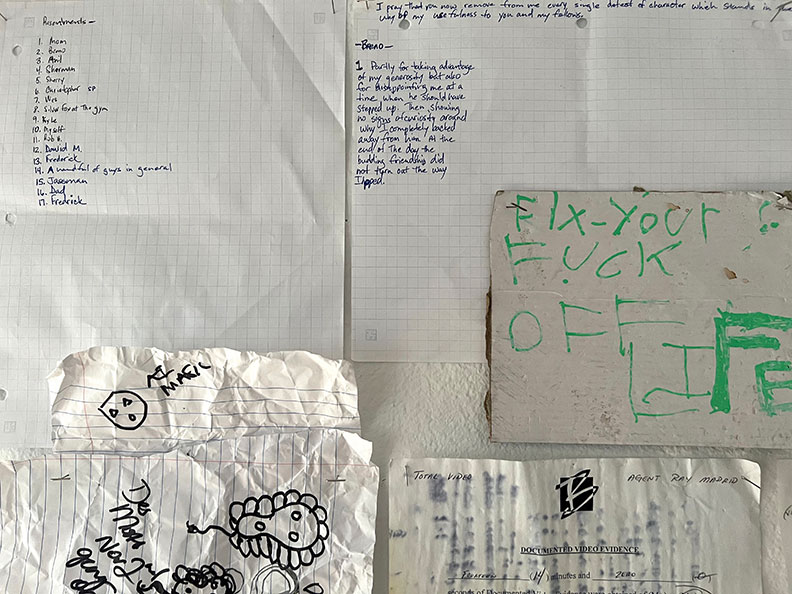 Resentments-
1. Mom
2. Bruno
3. April
4. Sherman
5. Sherry
6. Christopher SP
7. Wes
8. Silver fox at the gym
9. Kyle
10. Myself
11. Rob H.
12. David M.
13. Frederick
14. A handful of guys in general
15.
16. Dad
17. Fredrick
I pray that you now remove from me every single defect of character which stands in the
way of my usefulness to you and my fellows.
1 Partly for taking advantage
of my generosity but also
for disappointing me at a
time when he should have
stepped up. Then showing
no signs of curiosity around
why I completely backed
away from him. At the
end of the day the
budding friendship did
not turn out the way
I hoped.
FIX-YOUR
FUCK
OFF
LIFE
MAGIC
TOTAL VIDEO
AGENT RAY MADRID
DOCUMENTED VIDEO EVIDENCE
FOURTEEN (14) minutes and ZERO
seconds of Documented